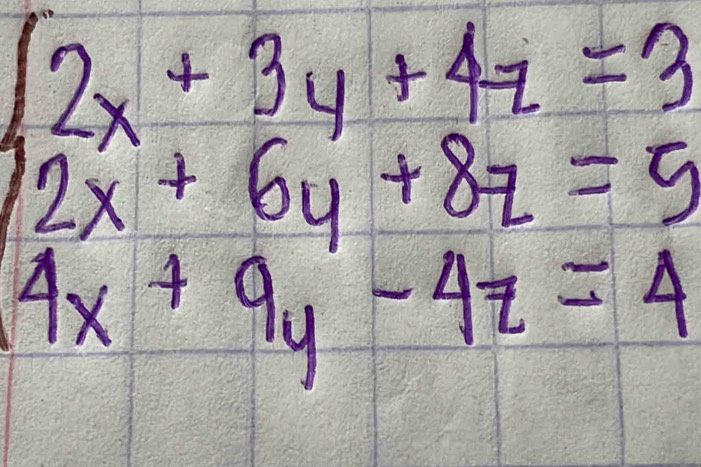 2x + 3y + 4z = 3
2x + 6y + 8z = 5
4x + 9y - 4z = 4